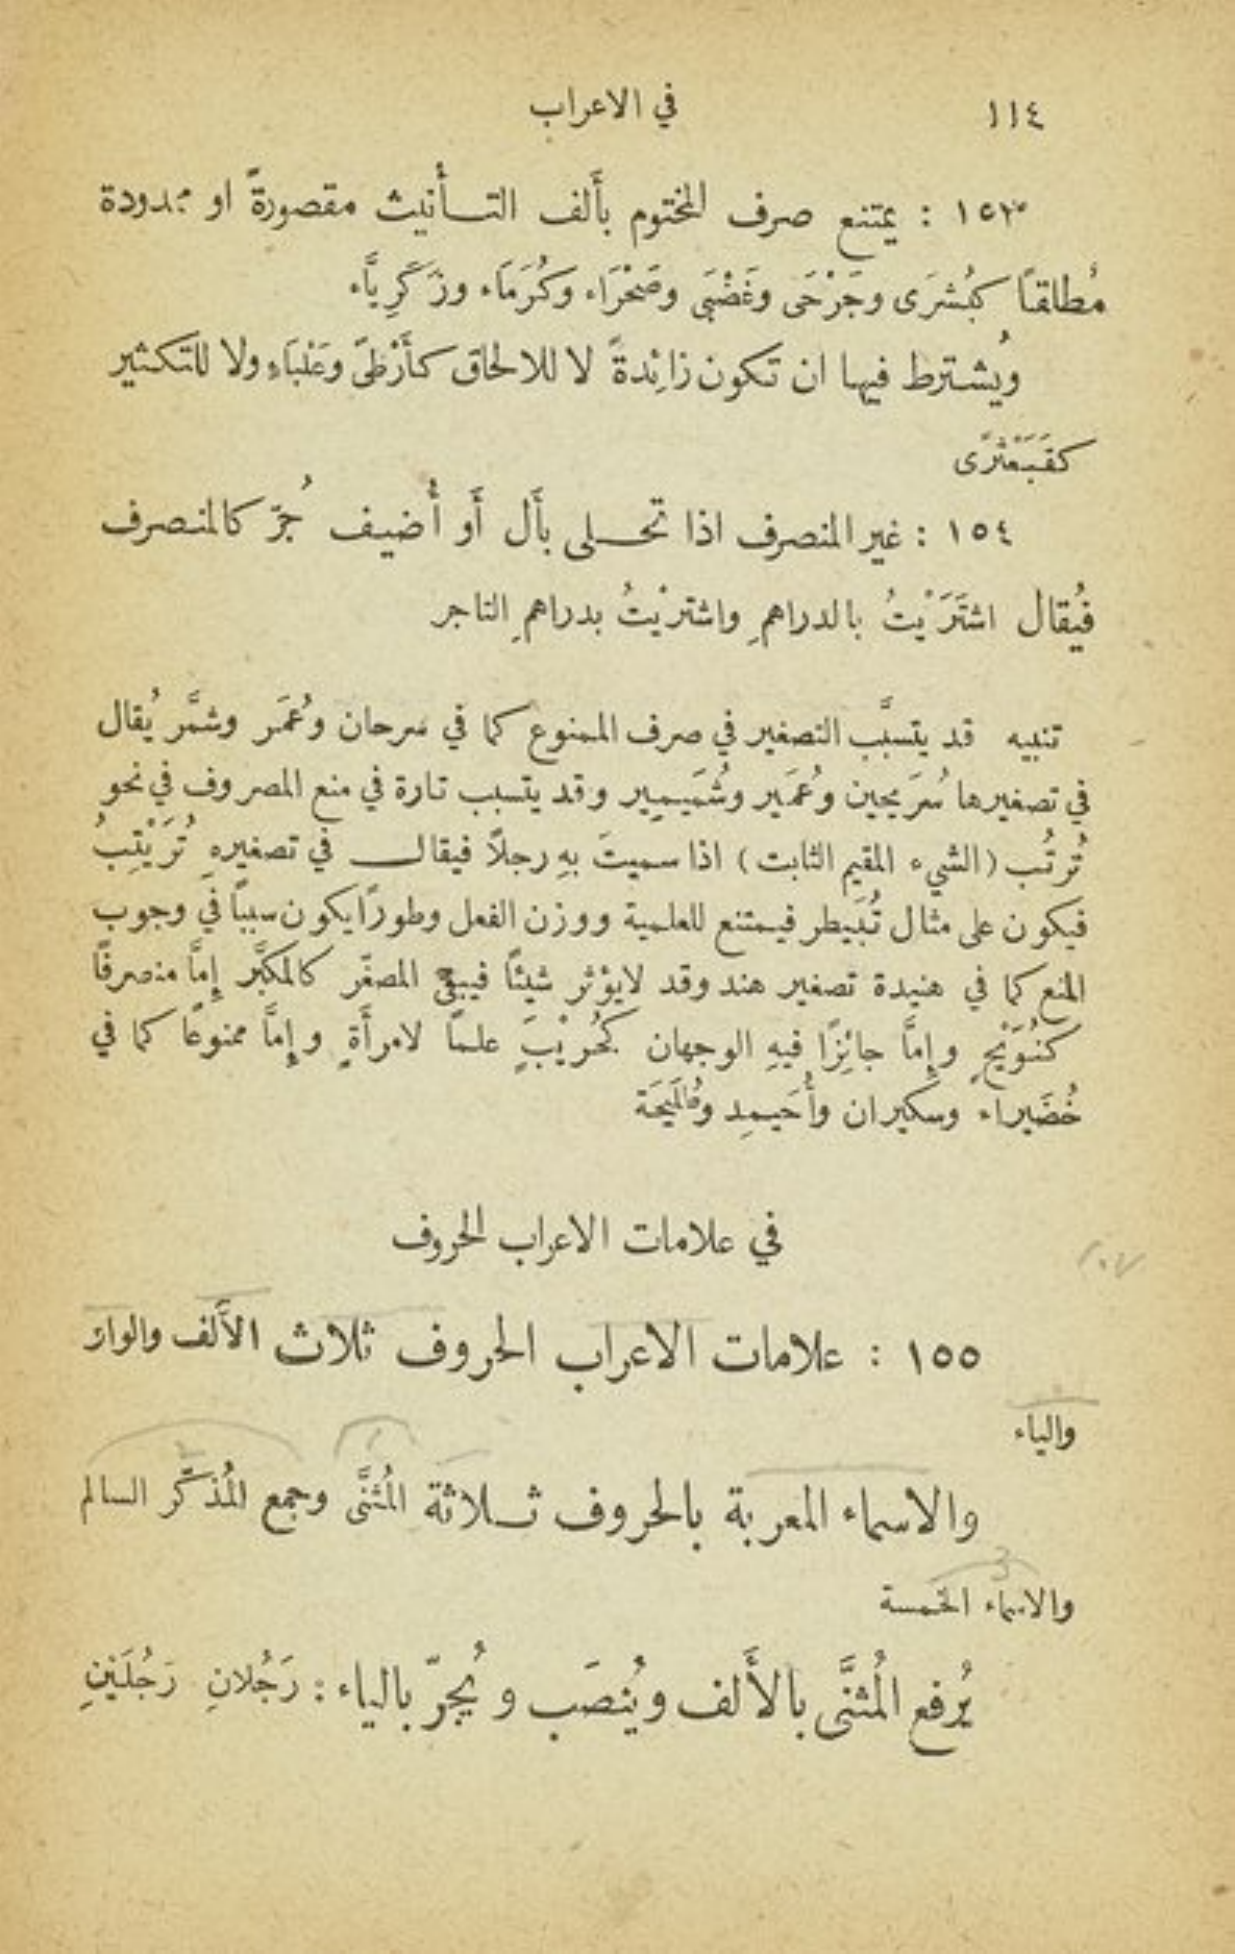 ١١٤ في الاعراب
١٥٣ : يمتنع صرف المختوم بأَلف التــأنيث مقصورةً او ممدودة
مُطلقاً كبُشرَى وجَرْحَى وغَضْبَى وصَحْرَاء وكُرَمَاء وزَكَرِيَّاء
ويُشترط فيها ان تكون زائِدةً لا للالحاق كأَرْطىً وعَلْبَاءٍ ولا للتكثير
كقَبَعْثَرًى
١٥٤ : غير المنصرف اذا تحــلى بأَل أَو أُضيف جُرّ كالمنصرف
فيُقال اشتَرَيْتُ بالدراهمِ واشتريْتُ بدراهمِ التاجر
تنبيه قد يتسبَّب التصغير في صرف الممنوع كما في سرحان وعُمَر وشمَّر يُقال
في تصغيرها سُرَيحين وعُمَير وشُمَيمِير وقد يتسبب تارة في منع المصروف في نحو
تُرتُب (الشيء المقيم الثابت) اذا سميتَ بهِ رجلاً فيقالــ في تصغيرهِ تُرَيْتِبُ
فيكون على مثال تُبَيطر فيمتنع للعلمية ووزن الفعل وطورًا يكون سبباً في وجوب
المنع كما في هنيدة تصغير هند وقد لايؤثر شيئًا فيبقى المصغّر كالمكبَّر إِمَّا منصرفًا
كنُوَيْحٍ وإِمَّا جائِزًا فيهِ الوجهان كحُرَيْبَ علماً لامرأَةٍ وإِمَّا ممنوعًا كما في
خُضَيراء وسكيران وأُحَيمِد وطُلَيحَة
في علامات الاعراب الحروف
١٥٥ : علامات الاعراب الحروف ثلاث الأَلف والواو
والياء
والاسماء المعربة بالحروف ثــلاثة المُثنَّى وجمع المُذكَّر السالم
والاسماء الخمسة
يُرفع المُثنَّى بالأَلف ويُنصَب ويُجرّ بالياء : رَجُلانِ رَجُلَينِ